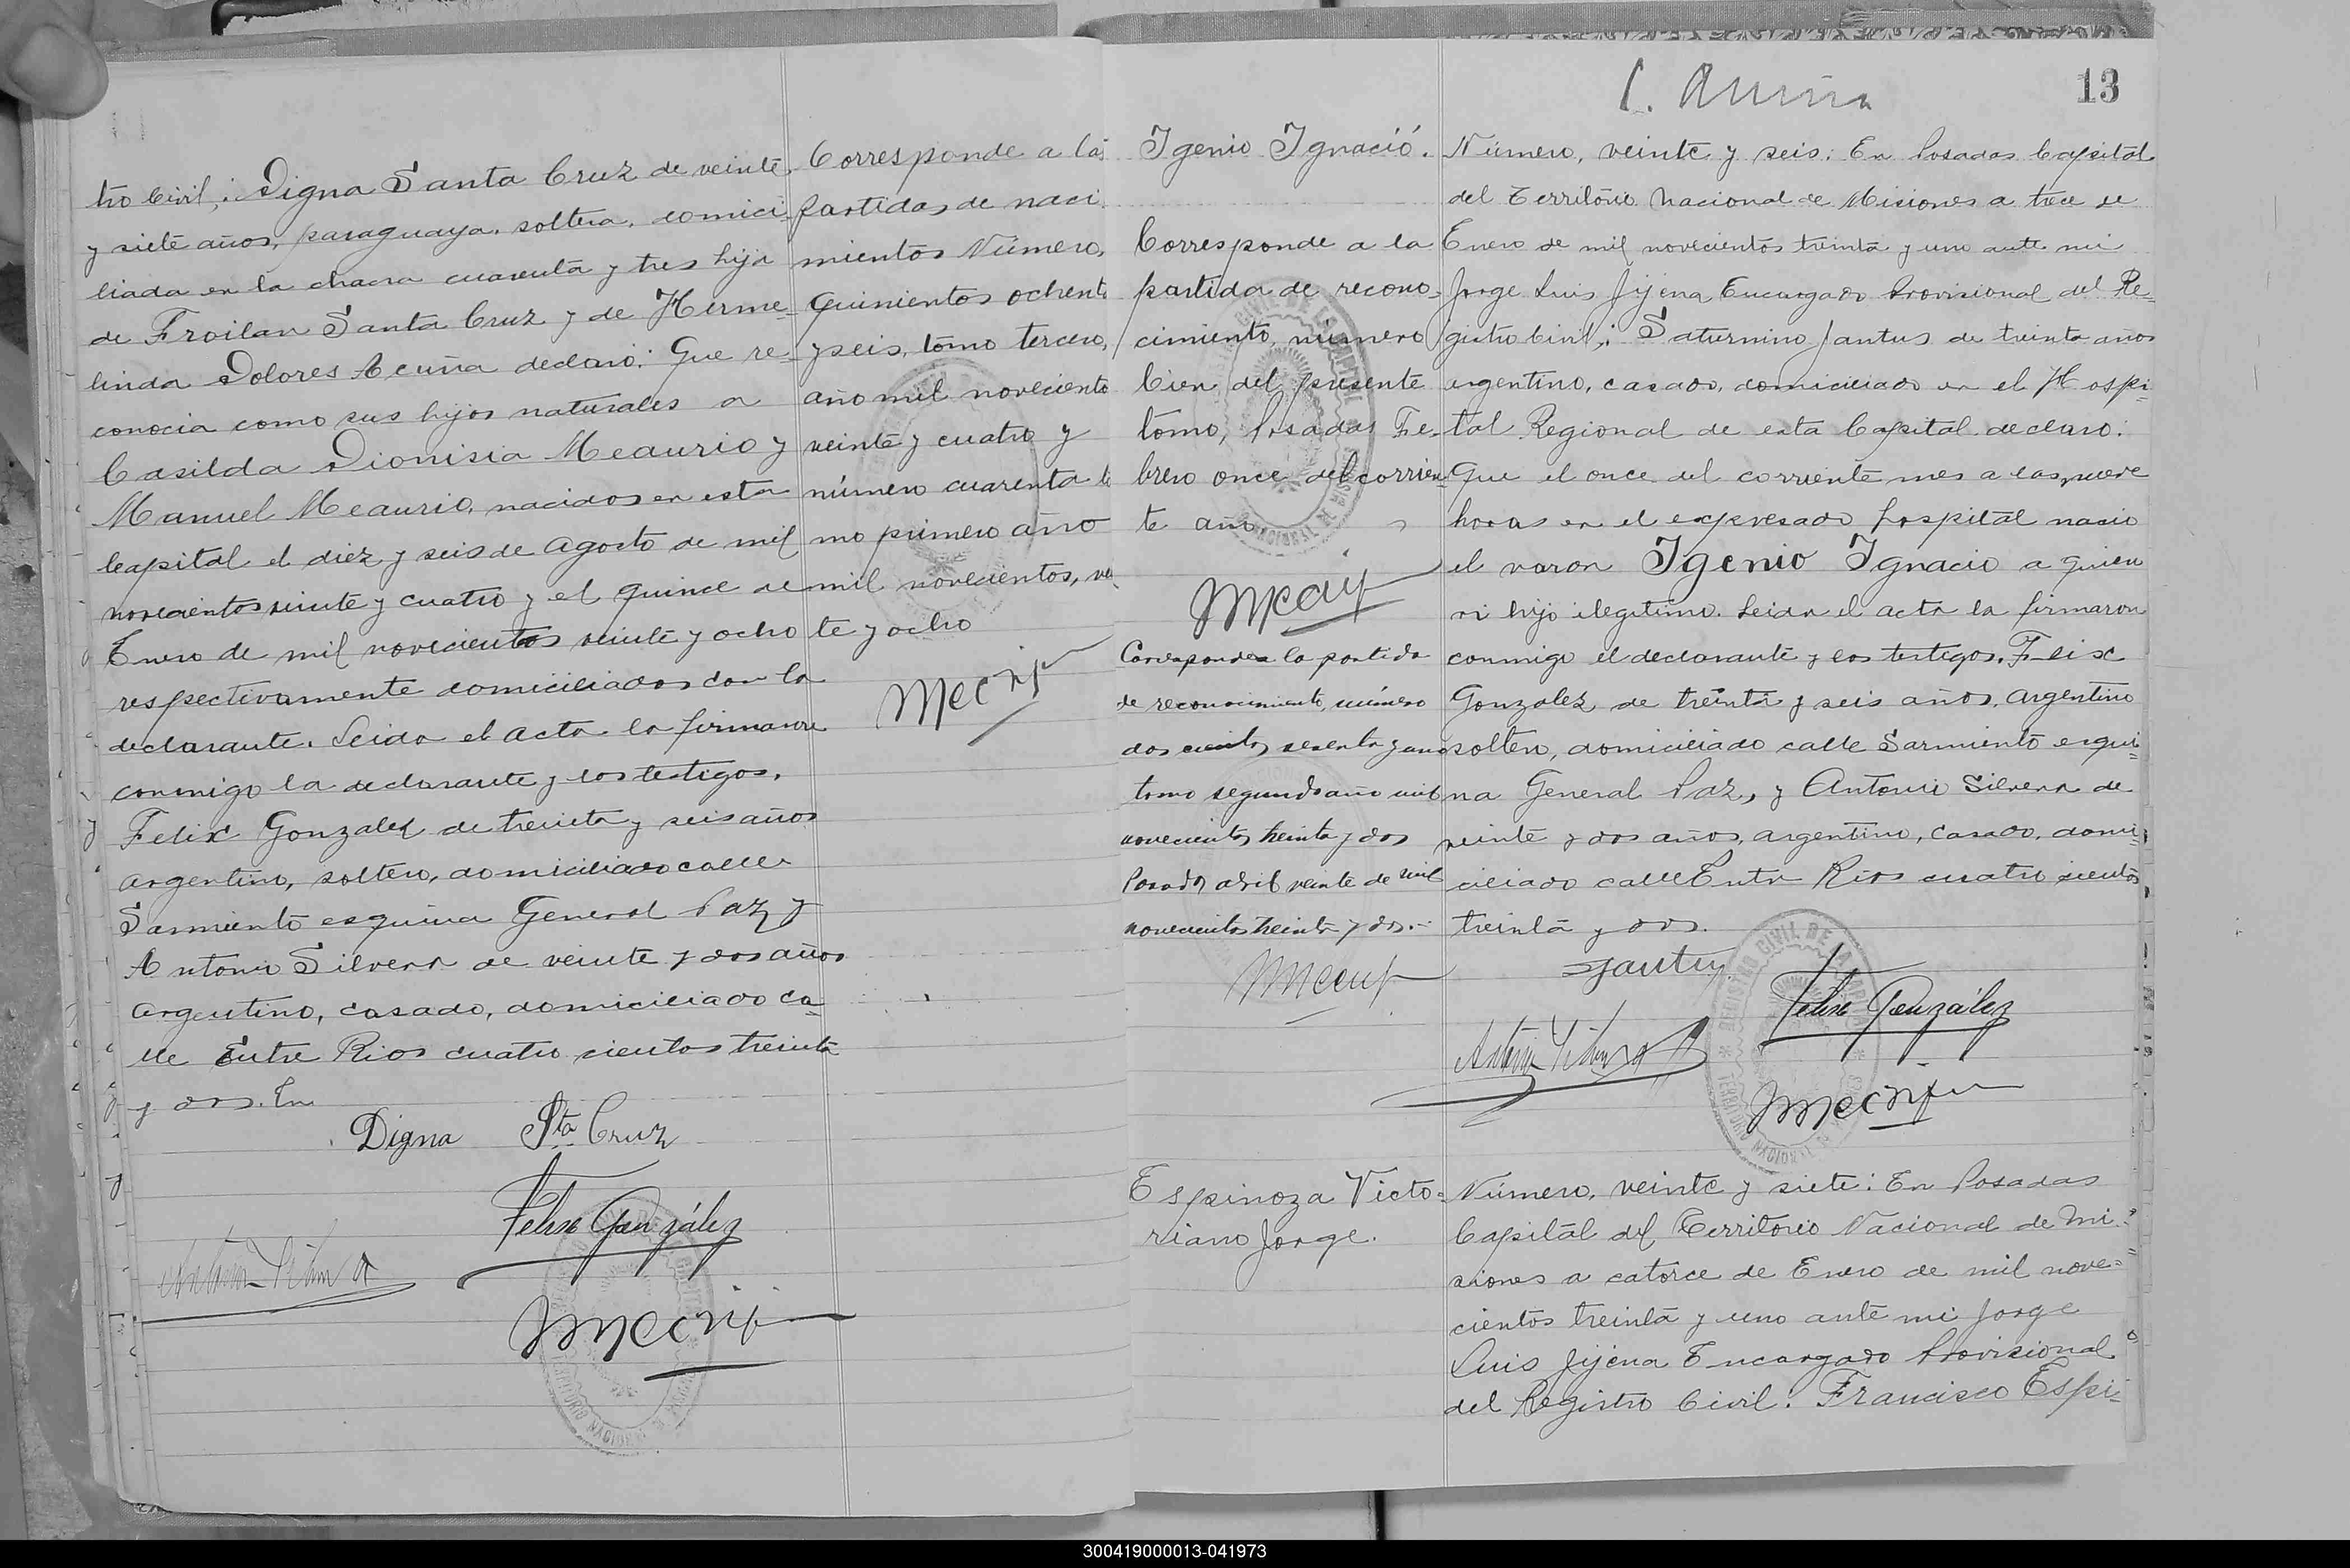 tro Civil,: Digna Santa Cruz de veinte
y siete años, paraguaya, soltera, domici-
liada en la chacra cuarenta y tres hija
de Froilan Santa Cruz y de Herme-
linda Dolores Acuña declaró: Que re-
conocia como sus hijos naturales a
Casilda Dionisia Meaurio y
Manuel Meaurio, nacidos en esta
Capital el diez y seis de Agosto de mil
novecientos veinte y cuatro y el quince de
Enero de mil novecientos veinte y ocho
respectivamente domiciliados con la
declarante. Leida el acta la firmaron
conmigo la declarante y los testigos,
Felix Gonzalez de treinta y seis años
argentino, soltero, domiciliado calle
Sarmiento esquina General Paz y
Antonio Silvera de veinte y dos años
argentino, casado, domiciliado ca-
lle Entre Rios cuatro cientos treinta
y dos. En
Digna Sta Cruz
Felix González
Corresponde a las
partidas de naci-
mientos Número,
quinientos ochenta
y seis, tomo tercero,
año mil novecientos
veinte y cuatro y
número cuarenta to
mo primero año
mil novecientos, vein
te y ocho
13
Igenio Ignació.
Corresponde a la
partida de recono-
cimiento, número
cien del presente
tomo, Posadas Fe-
brero once del corrien-
te año
Corresponde a la partida
de reconocimiento, número
dos cientos sesenta y uno
tomo segundo año mil
novecientos treinta y dos
Posadas abril veinte de mil
novecientos treinta y dos.-
Número, veinte y seis: En Posadas Capital
del Territorio Nacional de Misiones a trece de
Enero de mil novecientos treinta y uno ante mi
Jorge Luis Jijena Encargado Provisional del Re-
gistro Civil,: Saturnino Jantus de treinta años
argentino, casado, domiciliado en el Hospi-
tal Regional de esta Capital declaro:
Que el once del corriente mes a las nueve
horas en el expresado hospital nacio
el varon Igenio Ignacio a quien
vi hijo ilegitimo. Leida el acta la firmaron
conmigo el declarante y los testigos, Felix
Gonzalez de treinta y seis años, argentino
soltero, domiciliado calle Sarmiento esqui-
na General Paz, y Antonio Silvera de
veinte y dos años, argentino, casado, domi-
ciliado calle Entre Rios cuatro cientos
treinta y dos.
Felix González
Espinoza Victo-
riano Jorge.
Número, veinte y siete: En Posadas
Capital del Territorio Nacional de Mi-
siones a catorce de Enero de mil nove-
cientos treinta y uno ante mi Jorge
Luis Jijena Encargado Provisional
del Registro Civil: Francisco Espi-
300419000013-041973